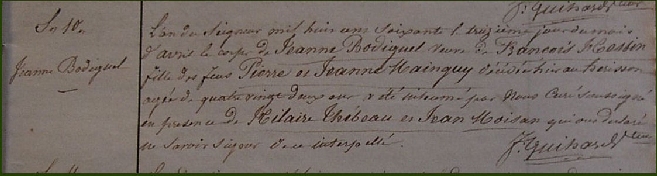 J. Guihard
Sre 10e
Jeanne Bodiguel
L'an du Seigneur mil huit cent soixante le treizième jour du mois
d'avril le corps de Jeanne Bodiguel veuve de François
fille des feus Pierre et Jeanne Mainguy décédée hier au
agée de quatre vingt deux ans a été inhumé par Nous Curé soussigné
en presence de Hilaire Thébeau et Jean Moisan qui ont déclaré
ne savoir signer de ce interpellé.
J. Guihard